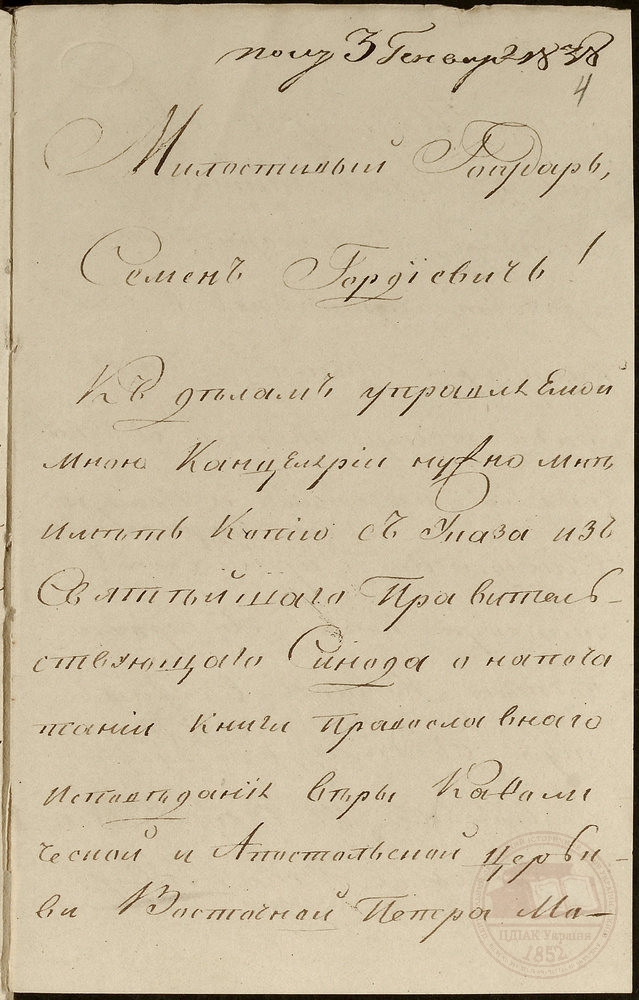 полу 3 Генвар 1838
4
Милостивый Государь,
Семенъ Гордіевичъ!
Къ дѣламъ управляемой
мною Канцеляріи нужно мнѣ
имѣть Копію съ Указа изъ
Святѣйшаго Правитель-
ствующаго Синода о напеча
таніи книги Православнаго
исповѣданія вѣры Каѳоли
ческой и Апостольской Церк-
ви Восточной Петра Мо-
ЦДІАК України
1852